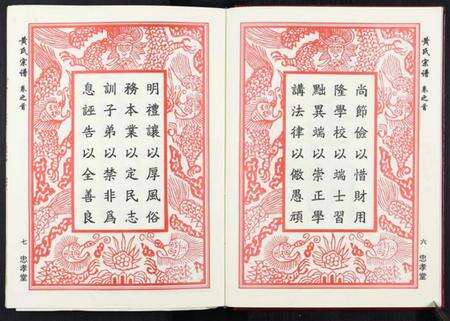 黄氏宗谱
卷之首
尚節儉以惜財用
隆學校以端士習
黜異端以崇正學
講法律以儆愚頑
六
忠孝堂
明禮讓以厚風俗
務本業以定民志
訓子弟以禁非爲
息誣告以全善良
黄氏宗谱
卷之首
七
忠孝堂